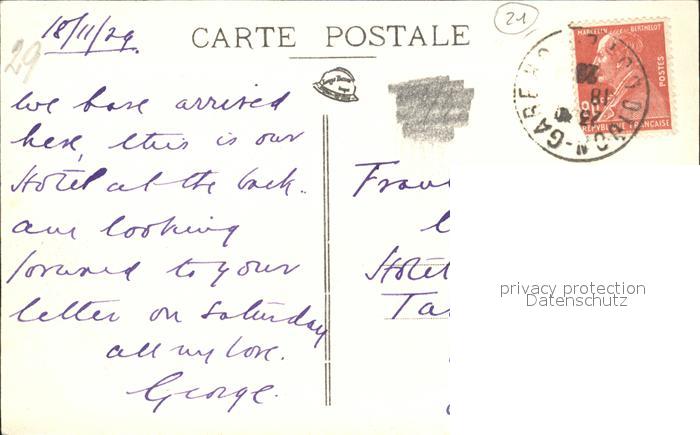 18/11/29.
CARTE POSTALE
21
29
MARCELIN BERTHELOT
POSTES
90
RÉPUBLIQUE FRANCAISE
DIJON-GARE
18
29
We have arrived
here, this is our
Hotel at the back.
am looking
forward to your
letter on Saturday
all my love.
George.
Hotel
privacy protection
Datenschutz